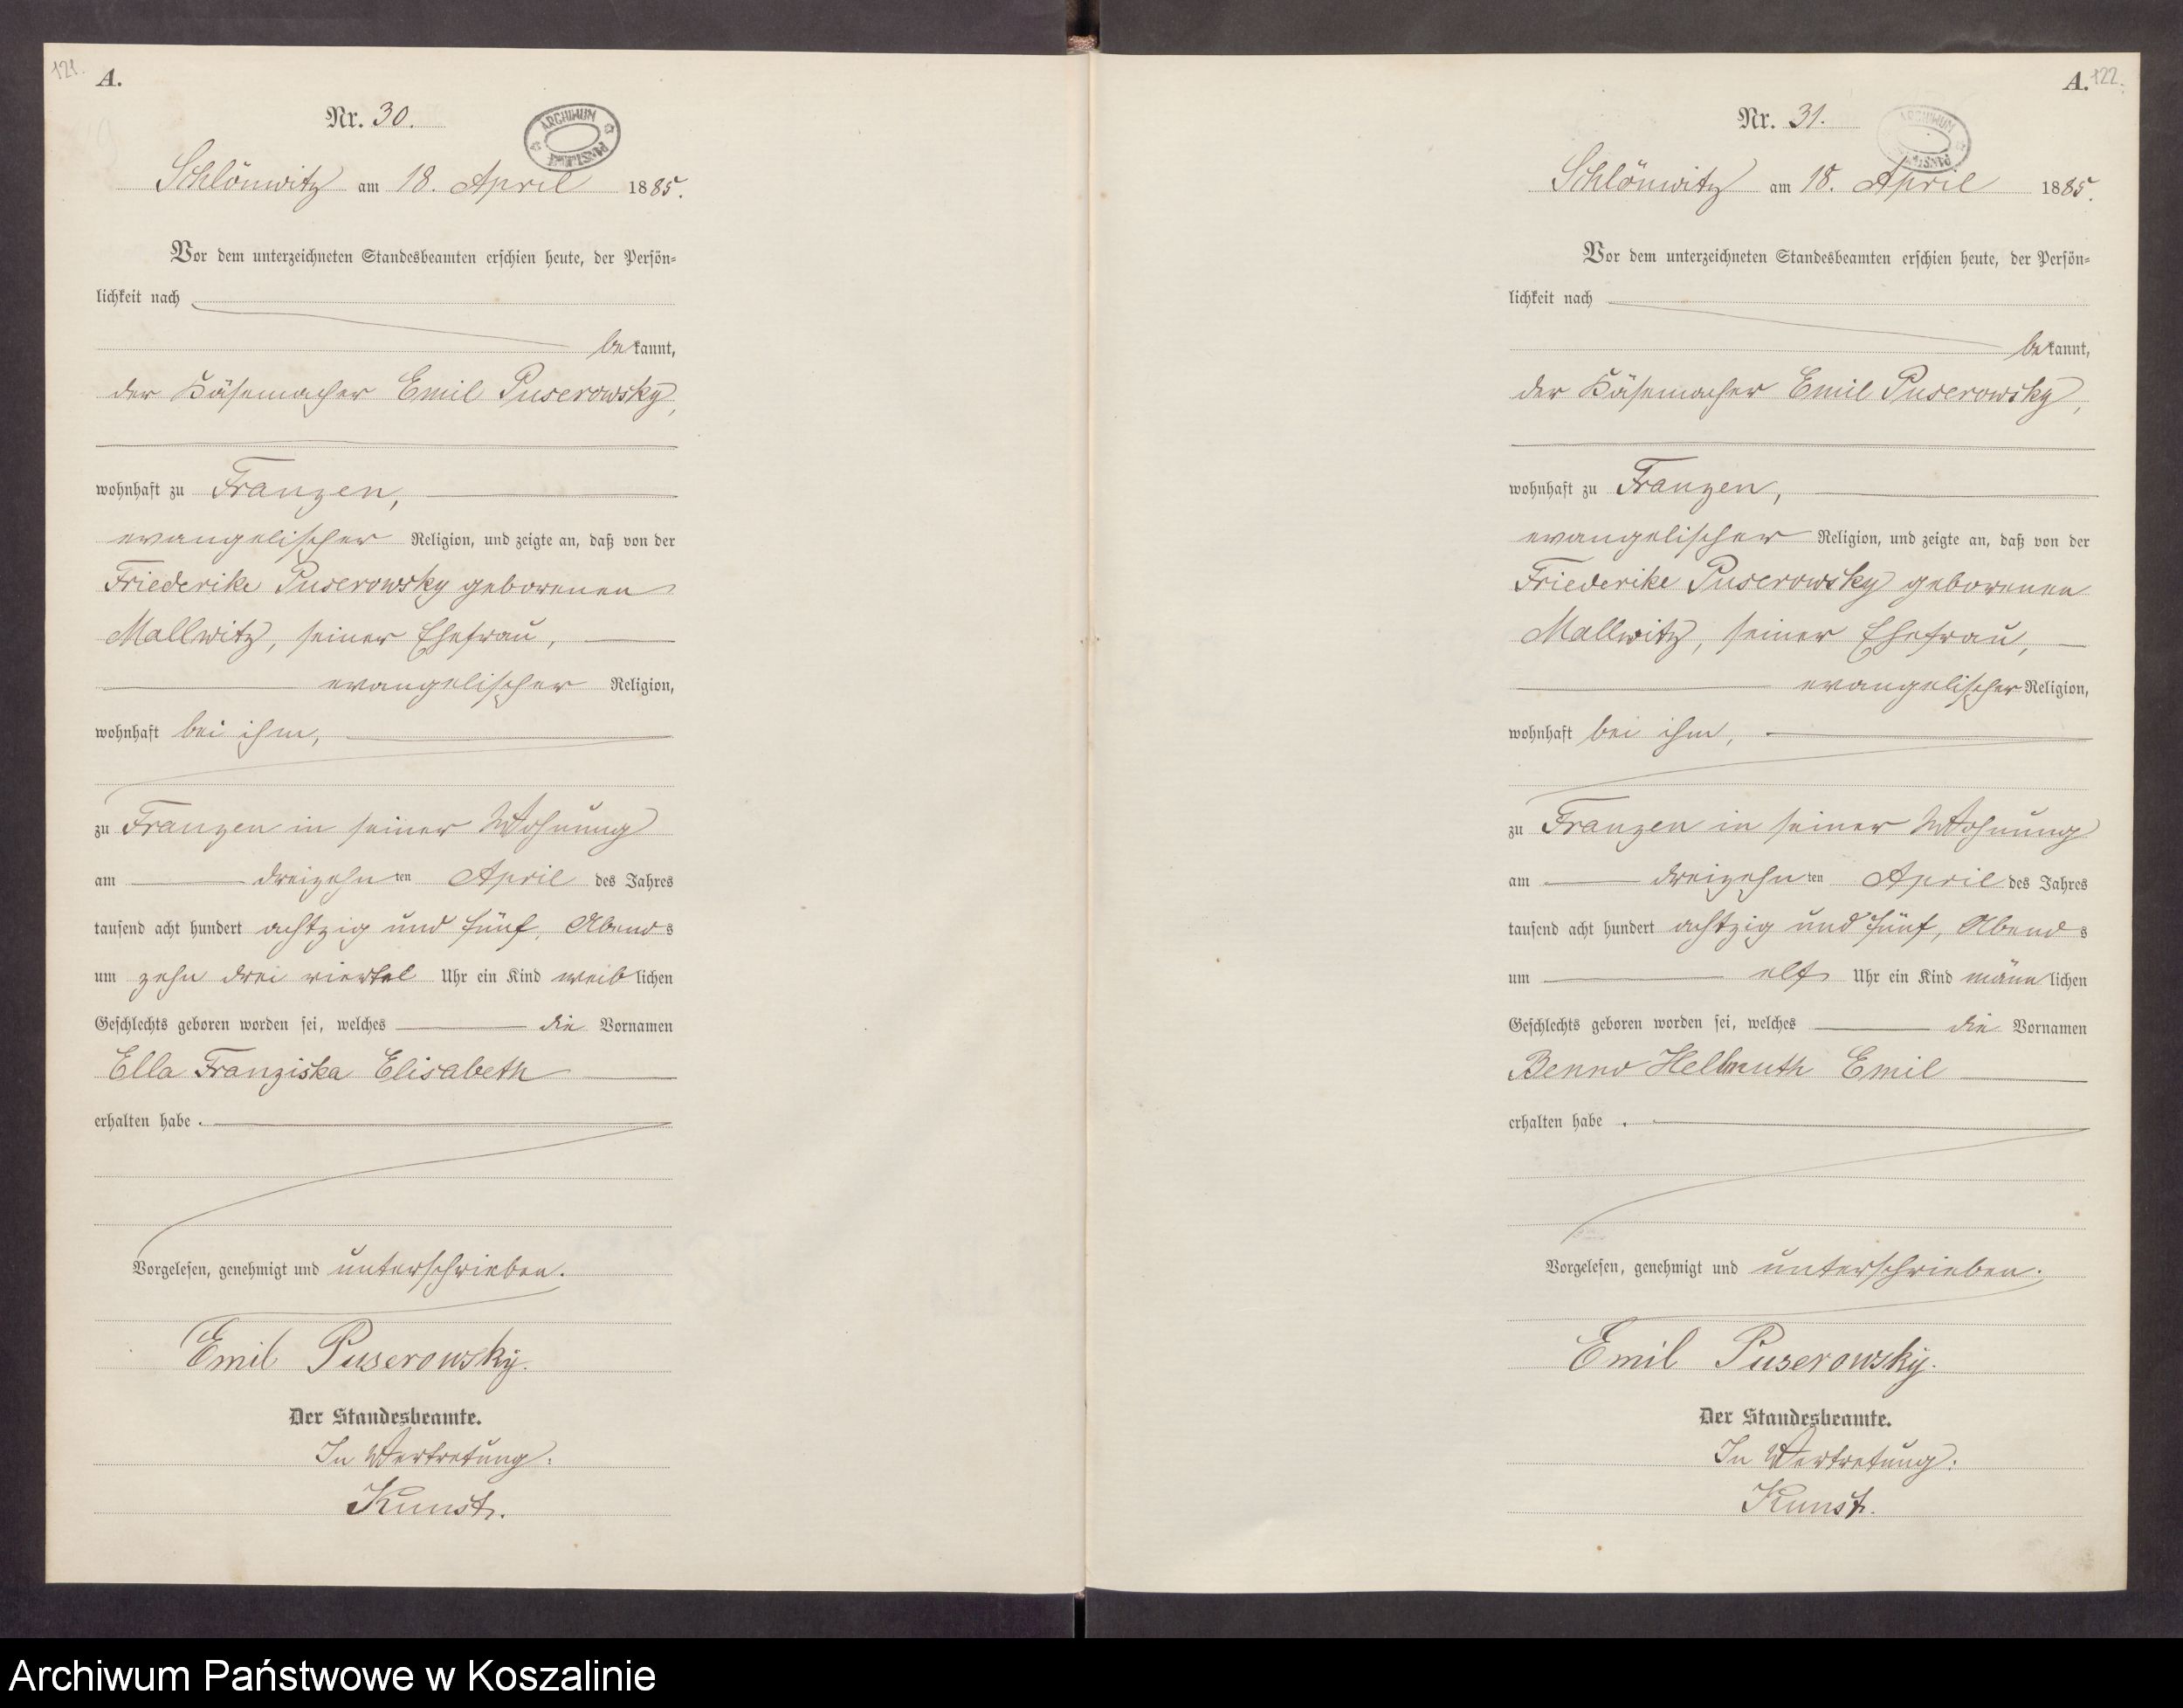 121.
A.
Nr. 30.
ARCHIWUM PAŃSTWOWE
Schlönwitz am 18. April 1885.
Vor dem unterzeichneten Standesbeamten erschien heute, der Persön-
lichkeit nach
bekannt,
der Käsemacher Emil Puserowsky,
wohnhaft zu Franzen,
evangelischer Religion, und zeigte an, daß von der
Friederike Puserowsky geborenen
Mallwitz, seiner Ehefrau,
evangelischer Religion,
wohnhaft bei ihm,
zu Franzen in seiner Wohnung
am dreizehnten April des Jahres
tausend acht hundert achtzig und fünf, Abends
um zehn drei viertel Uhr ein Kind weiblichen
Geschlechts geboren worden sei, welches die Vornamen
Ella Franziska Elisabeth
erhalten habe.
Vorgelesen, genehmigt und unterschrieben.
Emil Puserowsky.
Der Standesbeamte.
In Vertretung:
Kunst.
A.
122.
Nr. 31.
ARCHIWUM PAŃSTWOWE
Schlönwitz am 18. April 1885.
Vor dem unterzeichneten Standesbeamten erschien heute, der Persön-
lichkeit nach
bekannt,
der Käsemacher Emil Puserowsky,
wohnhaft zu Franzen,
evangelischer Religion, und zeigte an, daß von der
Friederike Puserowsky geborenen
Mallwitz, seiner Ehefrau,
evangelischer Religion,
wohnhaft bei ihm,
zu Franzen in seiner Wohnung
am dreizehnten April des Jahres
tausend acht hundert achtzig und fünf, Abends
um elf Uhr ein Kind männlichen
Geschlechts geboren worden sei, welches die Vornamen
Benno Hellmuth Emil
erhalten habe.
Vorgelesen, genehmigt und unterschrieben.
Emil Puserowsky.
Der Standesbeamte.
In Vertretung:
Kunst.
Archiwum Państwowe w Koszalinie